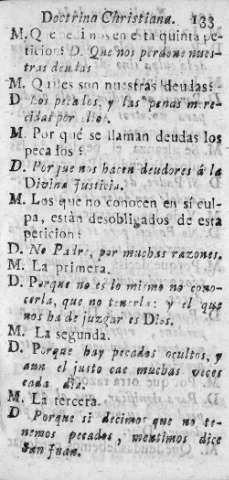 Doctrina Christiana. 133
M. Que pedimos en esta quinta pe-
ticion? D. Que nos perdone nues-
tras deudas
M. Quales son nuestras deudas?
D Los pecados, y las penas mere-
cidas por ellos.
M. Por qué se llaman deudas los
pecados?
D. Porque nos hacen deudores á la
Divina Justicia.
M. Los que no conocen en sí cul-
pa, están desobligados de esta
peticion?
D. No Padre, por muchas razones.
M. La primera.
D. Porque no es lo mismo no cono-
cerla, que no tenerla: y el que
nos ha de juzgar es Dios.
M. La segunda.
D. Porque hay pecados ocultos, y
aun el justo cae muchas veces
cada dia.
M. La tercera.
D Porque si decimos que no te-
nemos pecados, mentimos dice
San Juan.